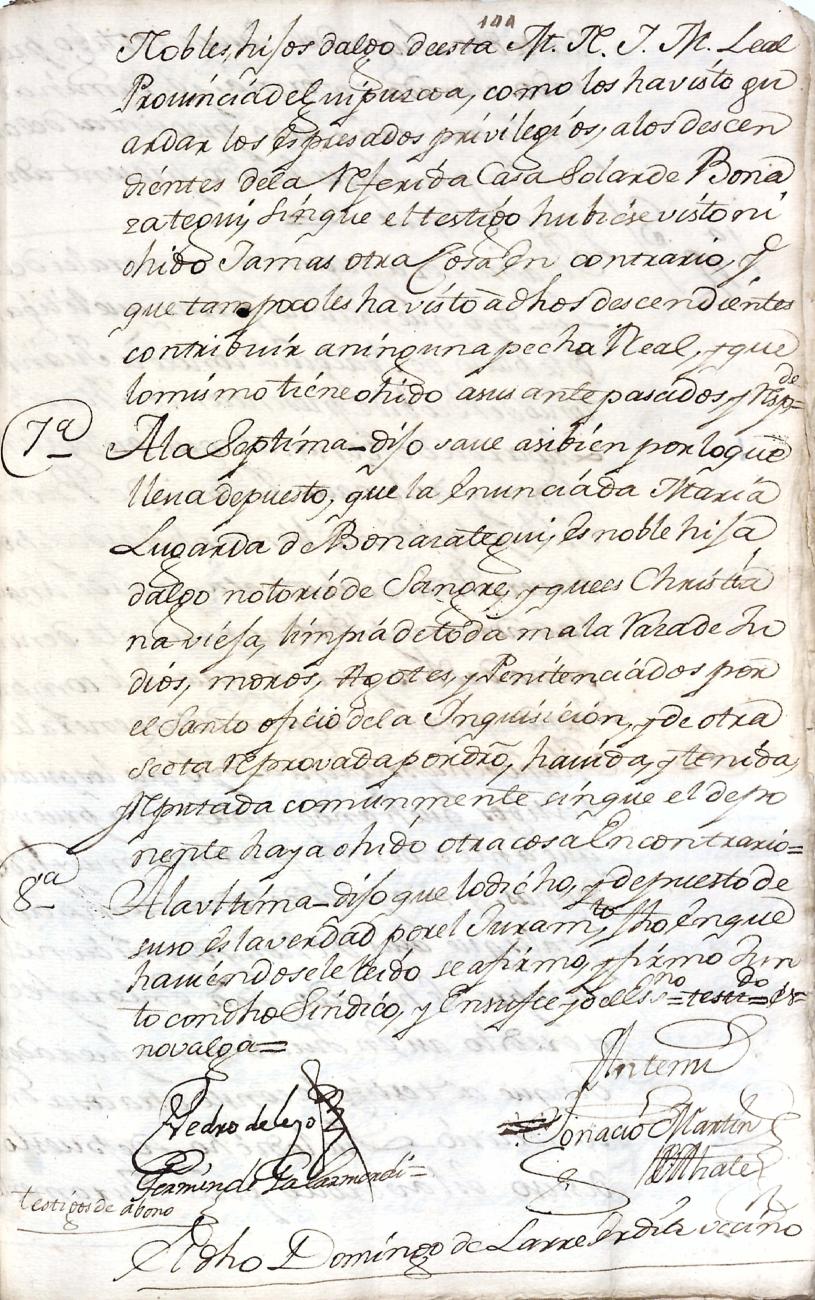 144
Nobles, hijosdalgo deesta M. N. I. M. Leal
Provinciadeguipuscoa, como los havisto gu
ardar los espresados privilegios, alosdescen
dientes dela Referida Casa Solarde Bona
rategui, sinque eltestigo hubiese visto ni
ohido Jamas otra Cosa en contrario, y
quetampocoles havisto adhos descendientes
contribuir aningunapecha Real, yque
lomismo tiene ohido asus antepasados y Resp=
de
7ª
Ala Septima_dijo save asibien porloque
lleva depuesto, que la enunciada Maria
Lugarda de Bonarategui, es noble hija
dalgo notoriode Sangre, yquees Christia
na vieja, limpia detoda mala Razade Ju
dios, moros, Agotes, y Penitenciados por
el Santo oficio dela Inquisicion, y de otra
secta Reprovada por dro, havida, y tenida,
y Reputada comunmente sinque el depo
nente haya ohido otra cosa En contrario=
8ª
Ala vltima_dijo que lodicho, y depuesto de
suso es la verdad por el Juramto, fho, en que
haviendosele leido se afirmo, y firmo Jun
to condho Sindico, y En su fee yo el Esno= testi=do es=
novalga=
Antemi
Pedro de lejo
Ignacio Martin
Fermin de Galarmendi=
testigos de abono
Eldho Domingo de Larre vecino